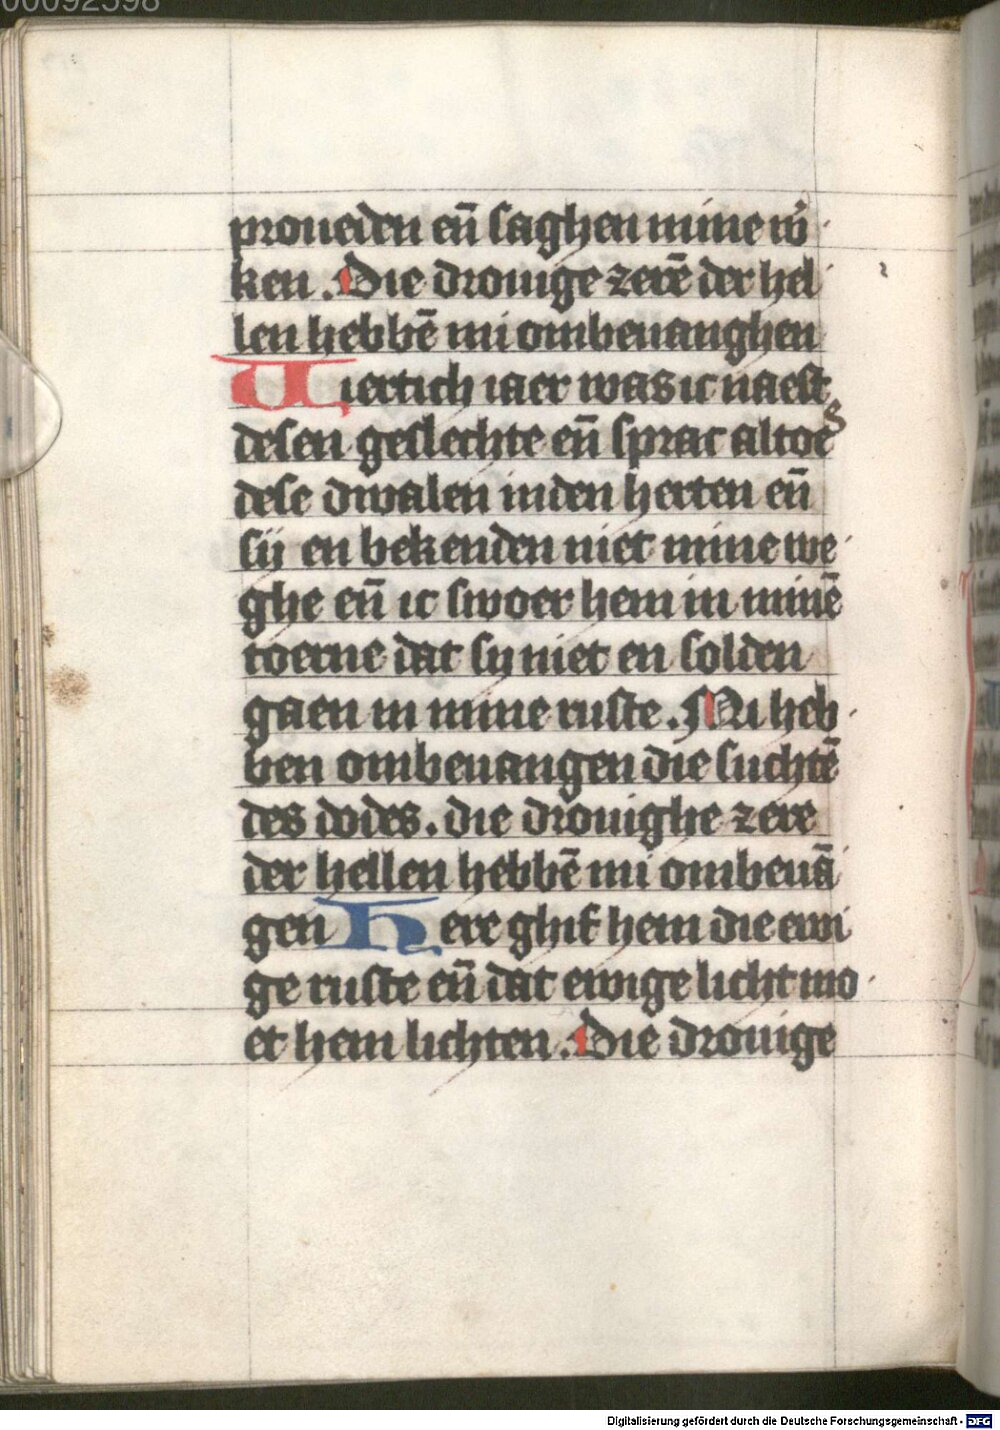 00092598
proueden en̄ saghen mine w̄
ken. Die drouige zerē der hel
len hebbē mi ombeuanghen
Uiertich iaer was ic naest
desen geslechte en̄ sprac altoes
dese dwalen inden herten en̄
sij en bekenden niet mine we
ghe en̄ ic swoer hem in minē
toerne dat sij niet en solden
gaen in mine ruste. Mi heb
ben ombeuangen die suchtē
des dodes. die drouighe zere
der hellen hebbē mi ombeuā
gen Here ghif hem die ewi
ge ruste en̄ dat ewige licht mo
et hem lichten. Die drouige
Digitalisierung gefördert durch die Deutsche Forschungsgemeinschaft - DFG